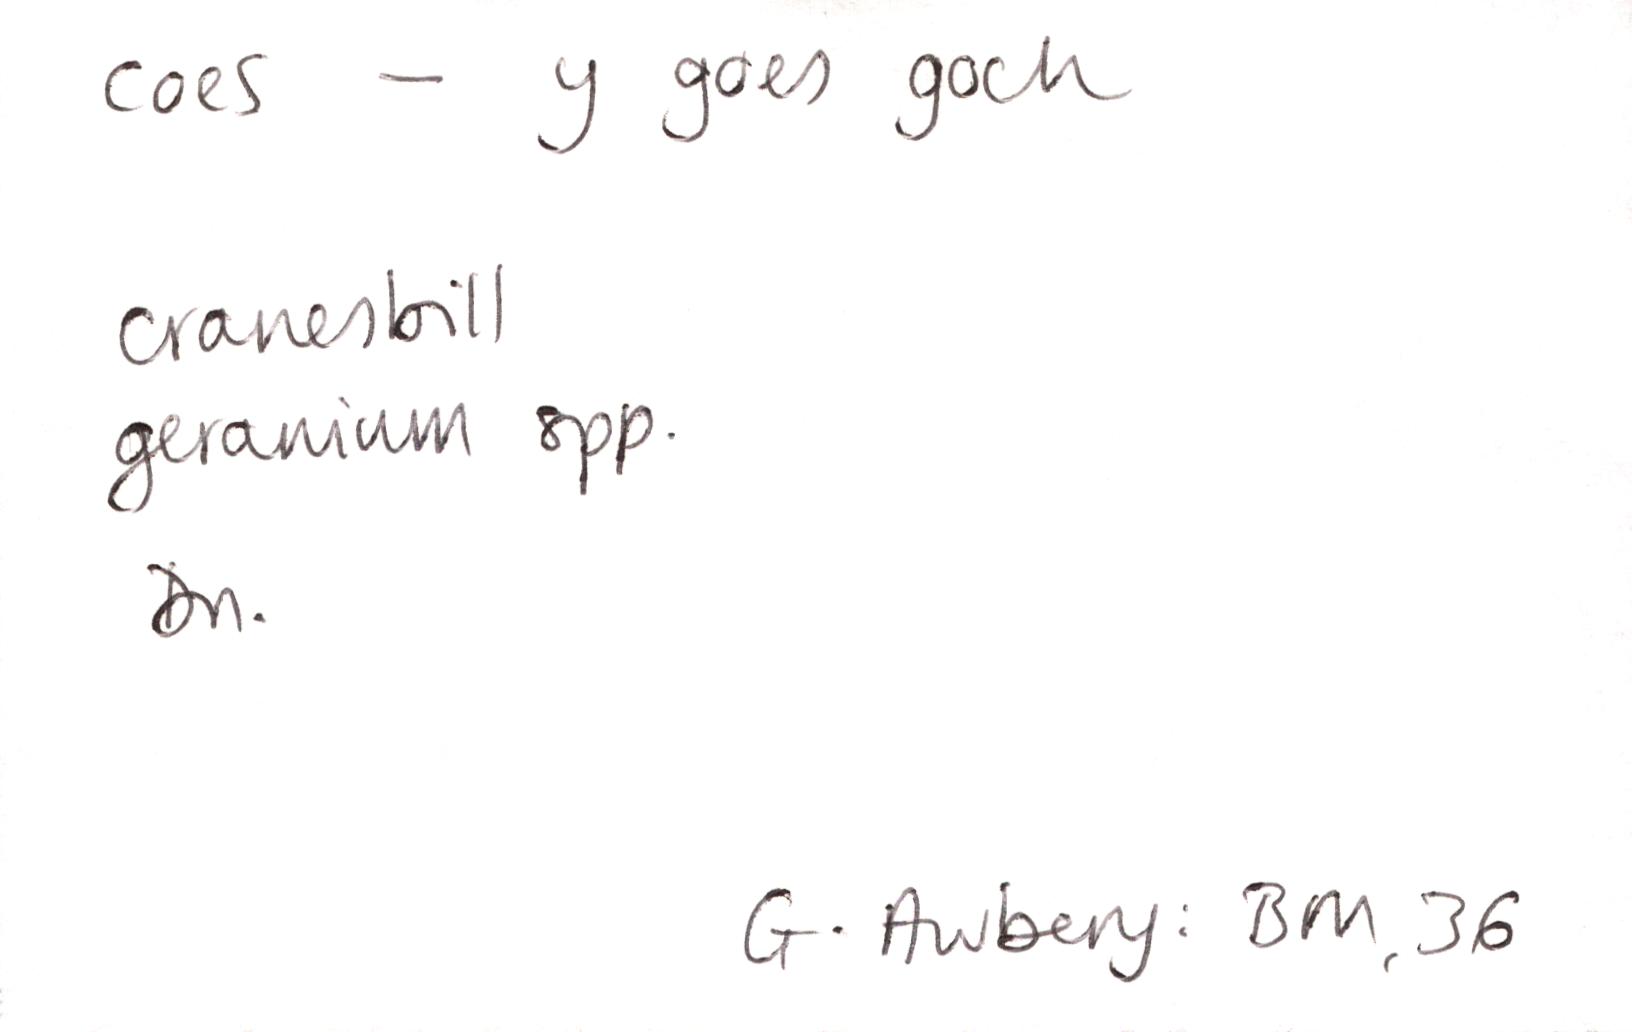 coes – y goes goch
cranesbill
geranium spp.
Dn.
G. Awbery: BM, 36